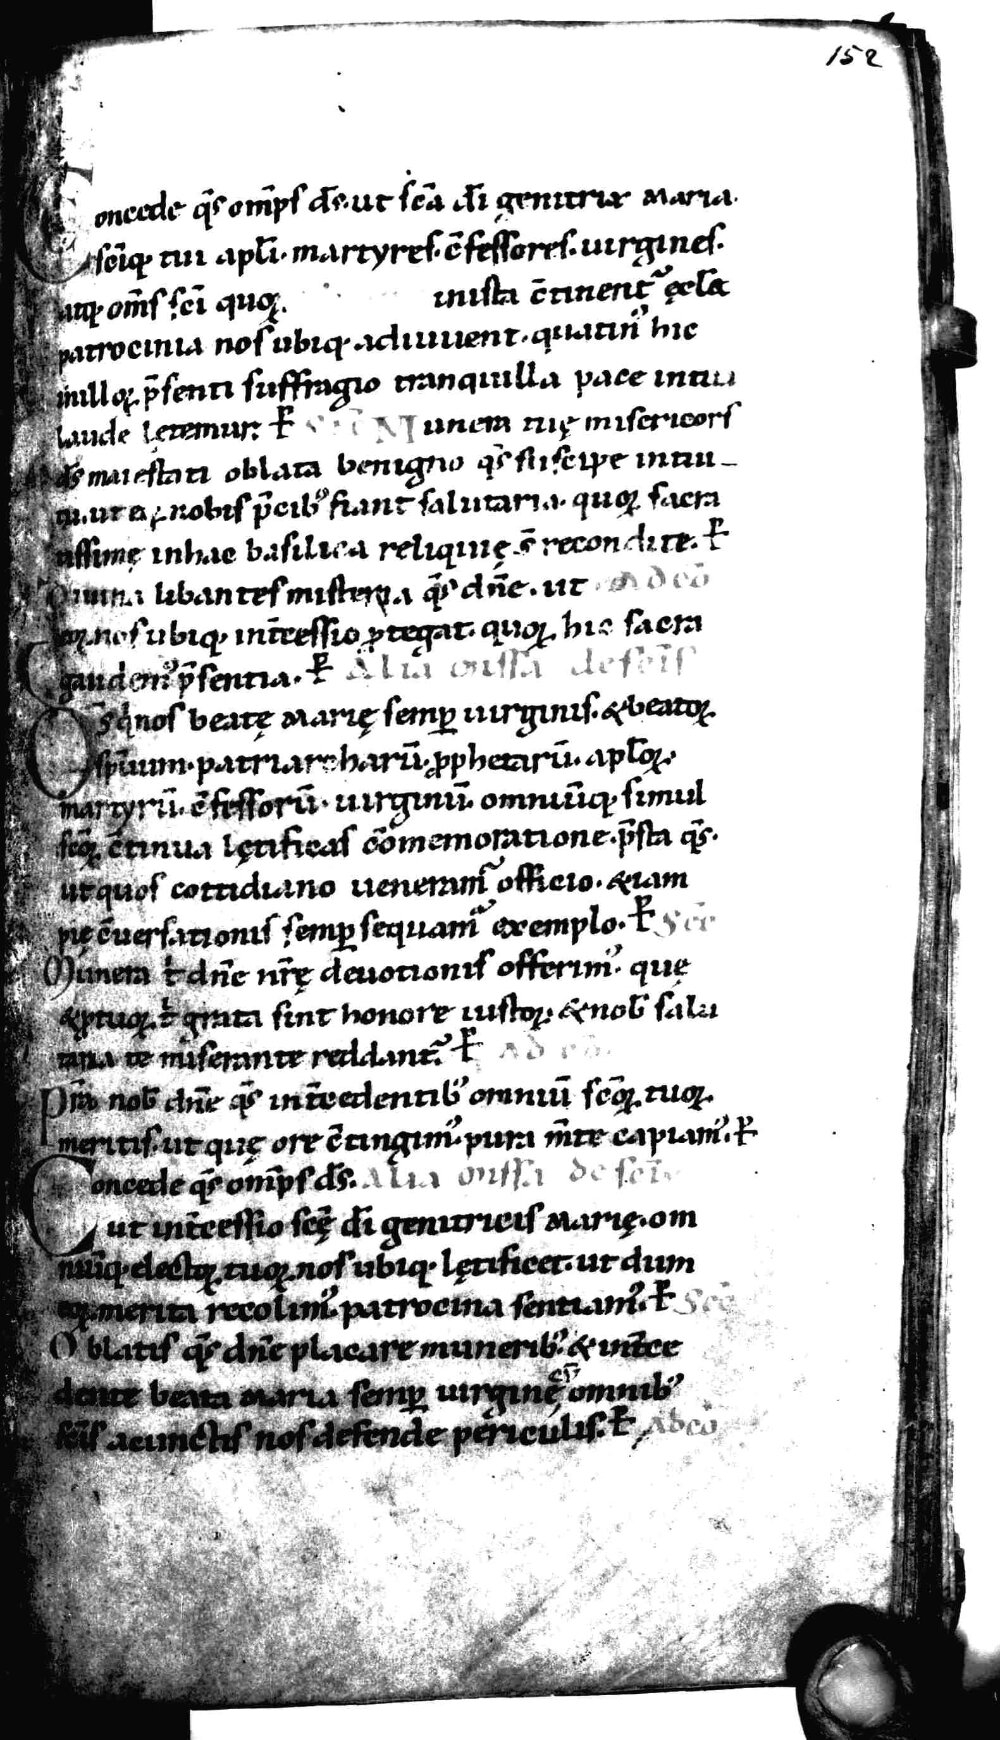 152
Concede q̄s om̄ps d̄s. ut sc̄a dī genitrix maria.
sc̄iq; tui apłi. martyres. c̄fessores. uirgines.
atq; om̄s sc̄i quoꝝ inista c̄tinent᷑ ęccła
patrocinia nos ubiq; adiuuent. quatin᷒ hic
inilloꝝ p̄senti suffragio tranquilla pace intua
laude lętemur. P̱ Sec̄ Munera tuę misericors
d̄s maiestati oblata benigno q̄s suscipe intui-
tu. ut eoꝝ nobis p̄cib᷒ fiant salutaria. quoꝝ sacra
tissimę inhac basilica reliquię s̄ recondite. P̱
Diuina libantes misteria q̄s dn̄e. ut Ad cō
eoꝝ nos ubiq; int̄cessio ꝓtegat. quoꝝ hic sacra
gaudem᷒ p̄sentia. P̱ Alia missa de sc̄is
Ds̄ q̇ nos beatę marię semꝑ uirginis. & beatoꝝ
sp̄ituum. patriarcharū. ꝓphetarū. apłoꝝ.
martyrū. c̄fessorū. uirginū. omniūq; simul
sc̄oꝝ c̄tinua lętificas cōmemoratione. p̄sta q̄s.
ut quos cottidiano ueneram᷑ officio. & iam
pię c̄uersationis semꝑ sequam᷑ exemplo. P̱ Sec̄
Munera t̄ dn̄e nr̄ę deuotionis offerim᷒. quę
& ꝓ tuoꝝ t̄ grata sint honore iustoꝝ. & nob̄ salu
taria te miserante reddant᷑. P̱ Ad cō.
Pr̄a nob̄ dn̄e q̄s int̄cedentib᷒ omniū sc̄oꝝ tuoꝝ
meritis. ut quę ore c̄tingim᷒. pura m̄te capiam᷒. P̱
Concede q̄s om̄ps d̄s. Alia missa de sc̄is
ut int̄cessio sc̄ę dī genitricis marię. om
niūq; electoꝝ tuoꝝ nos ubiq; lętificet. ut dum
eoꝝ merita recolim᷒. patrocinia sentiam᷒. P̱ Sec̄
Oblatis q̄s dn̄e placare munerib᷒. & int̄ce
dente beata maria semꝑ uirginę cū omnib᷒
sc̄is acunctis nos defende periculis. P̱ Ad cō